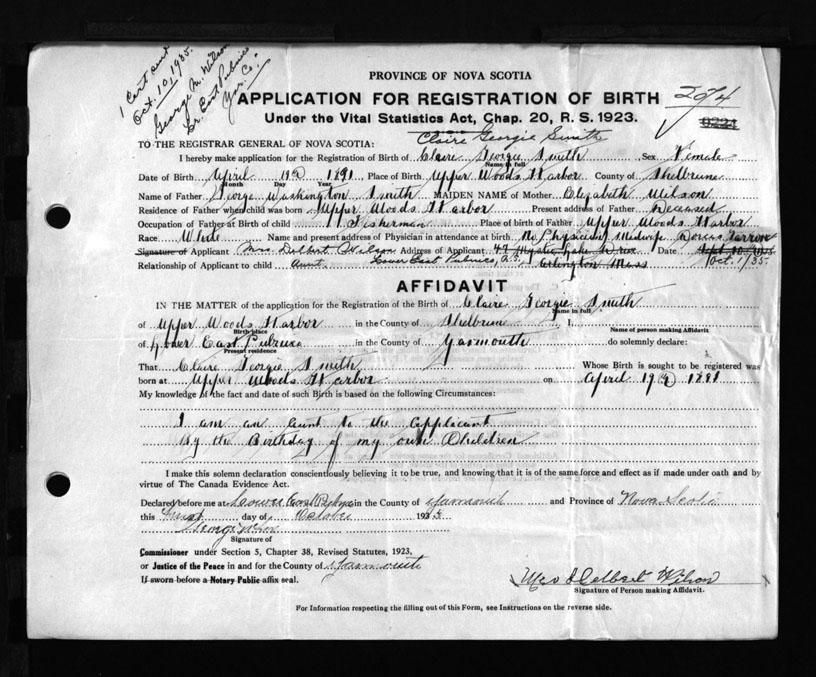 1 Cert sent
Oct. 10, 1935.
George M. Wilson
Lr. East Pubnico
Yar. Co.
PROVINCE OF NOVA SCOTIA
APPLICATION FOR REGISTRATION OF BIRTH 2074
Under the Vital Statistics Act, Chap. 20, R. S. 1923.
Claire Georgie Smith
TO THE REGISTRAR GENERAL OF NOVA SCOTIA:
I hereby make application for the Registration of Birth of Claire Georgie Smith Sex Female
Name in full
Date of Birth April 19 1891 Place of Birth Upper Woods Harbor County of Shelburne
Month Day Year
Name of Father George Washington Smith MAIDEN NAME of Mother Elizabeth Wilson
Residence of Father when child was born Upper Woods Harbor Present address of Father Deceased
Occupation of Father at Birth of child Fisherman Place of birth of Father Upper Woods Harbor
Race White Name and present address of Physician in attendance at birth No Physician Midwife Dorcas
Signature of Applicant Mrs Delbert Wilson Address of Applicant 47 Mystic Lake Drive Date
Relationship of Applicant to child Aunt Lower East Pubnico, N.S. Arlington Mass Oct. 1/35.
AFFIDAVIT
IN THE MATTER of the application for the Registration of the Birth of Claire Georgie Smith
Name in full
of Upper Woods Harbor in the County of Shelburne I,
Birth place Name of person making Affidavit
of Lower East Pubnico in the County of Yarmouth do solemnly declare:
Present residence
That Claire Georgie Smith Whose Birth is sought to be registered was
born at Upper Woods Harbor on April 19 1891
My knowledge of the fact and date of such Birth is based on the following Circumstances:
I am an Aunt to the Applicant
By the Birthday of my own Children
I make this solemn declaration conscientiously believing it to be true, and knowing that it is of the same force and effect as if made under oath and by
virtue of The Canada Evidence Act.
Declared before me at Lower East Pubnico in the County of Yarmouth and Province of Nova Scotia
this First day of October 1935
George Wilson
Signature of
Commissioner under Section 5, Chapter 38, Revised Statutes, 1923,
or Justice of the Peace in and for the County of Yarmouth
If sworn before a Notary Public affix seal.
Mrs Delbert Wilson
Signature of Person making Affidavit.
For Information respecting the filling out of this Form, see Instructions on the reverse side.